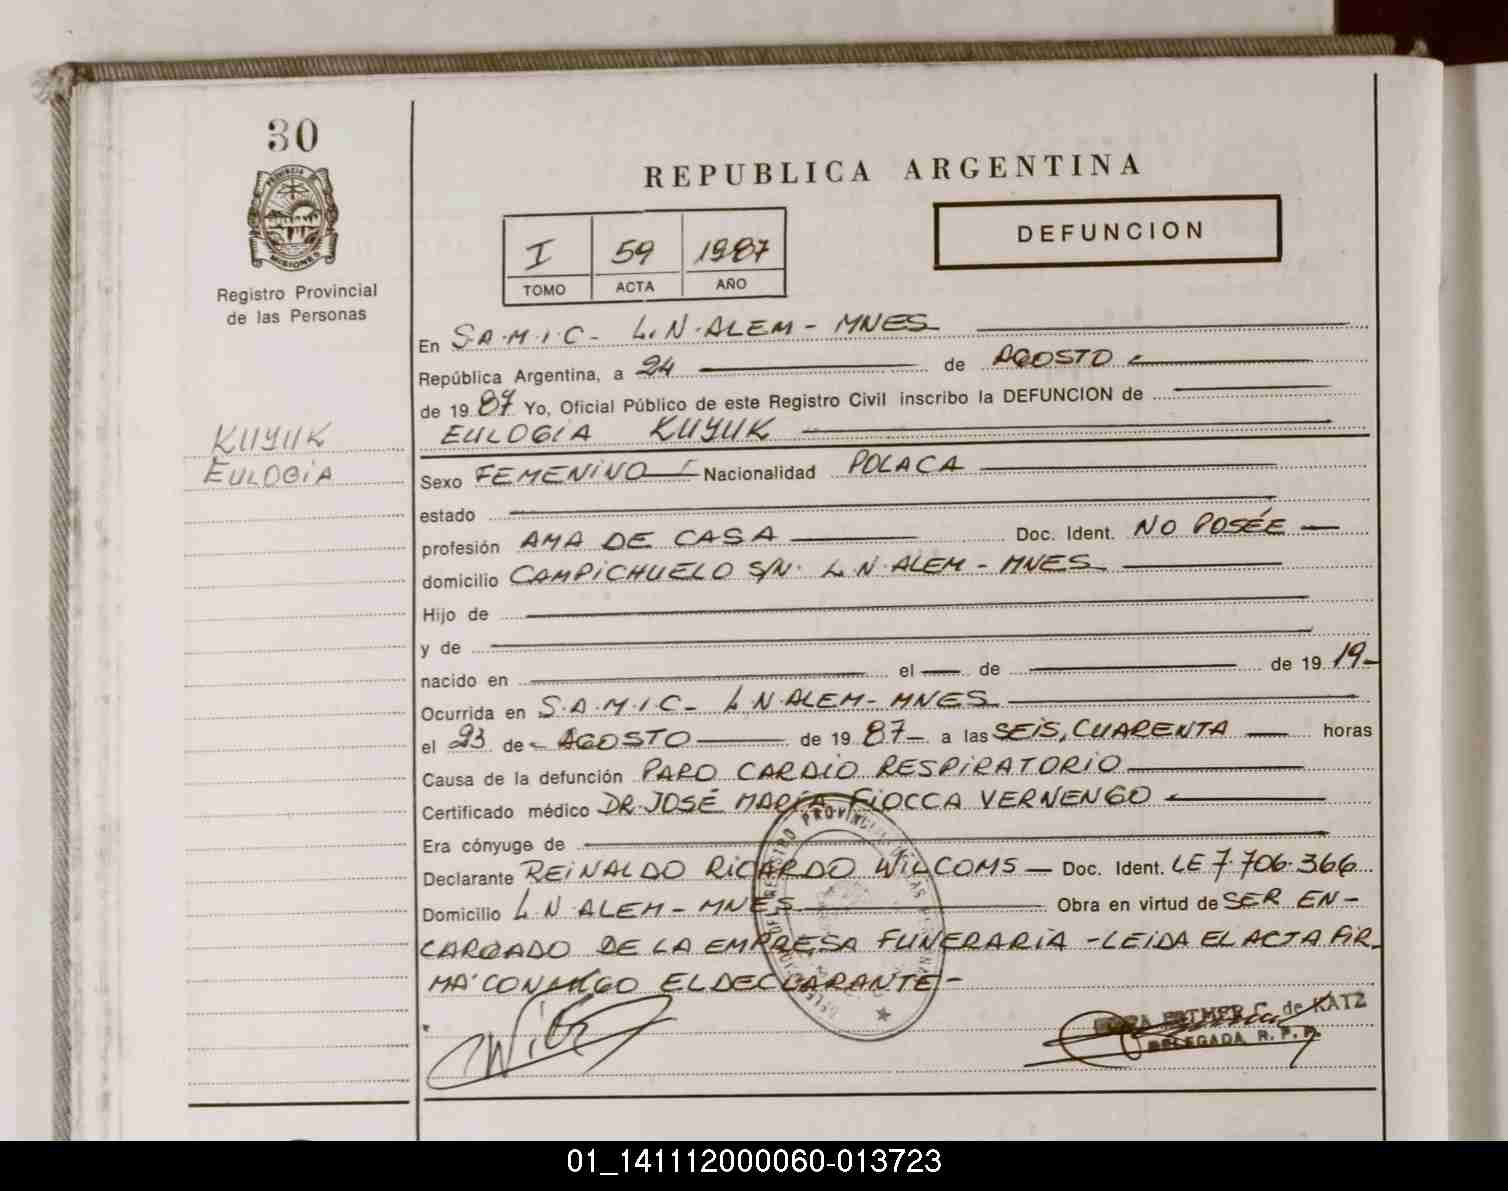 30
PROVINCIA
MISIONES
Registro Provincial
de las Personas
KUYUK
EULOGIA
REPUBLICA ARGENTINA
I 59 1987
TOMO ACTA AÑO
DEFUNCION
En S.A.M.I.C- L.N.ALEM - MNES
República Argentina, a 24 de AGOSTO
de 1987 Yo, Oficial Público de este Registro Civil inscribo la DEFUNCION de
EULOGIA KUYUK
Sexo FEMENINO Nacionalidad POLACA
estado
profesión AMA DE CASA Doc. Ident. NO POSÉE
domicilio CAMPICHUELO S/N. L.N.ALEM - MNES
Hijo de
y de
nacido en el de de 1919-
Ocurrida en S.A.M.I.C- L.N.ALEM- MNES
el 23 de AGOSTO de 1987- a las SEIS, CUARENTA horas
Causa de la defunción PARO CARDIO RESPIRATORIO
Certificado médico DR. JOSÉ MARÍA FIOCCA VERNENGO
Era cónyuge de
Declarante REINALDO RICARDO WILCOMS - Doc. Ident. LE 7.706.366
Domicilio L N ALEM - MNES Obra en virtud de SER EN-
CARGADO DE LA EMPRESA FUNERARIA - LEIDA EL ACTA FIR-
MA CONMIGO EL DECLARANTE -
ESTHER C. de KATZ
DELEGADA R. P. P.
01_141112000060-013723